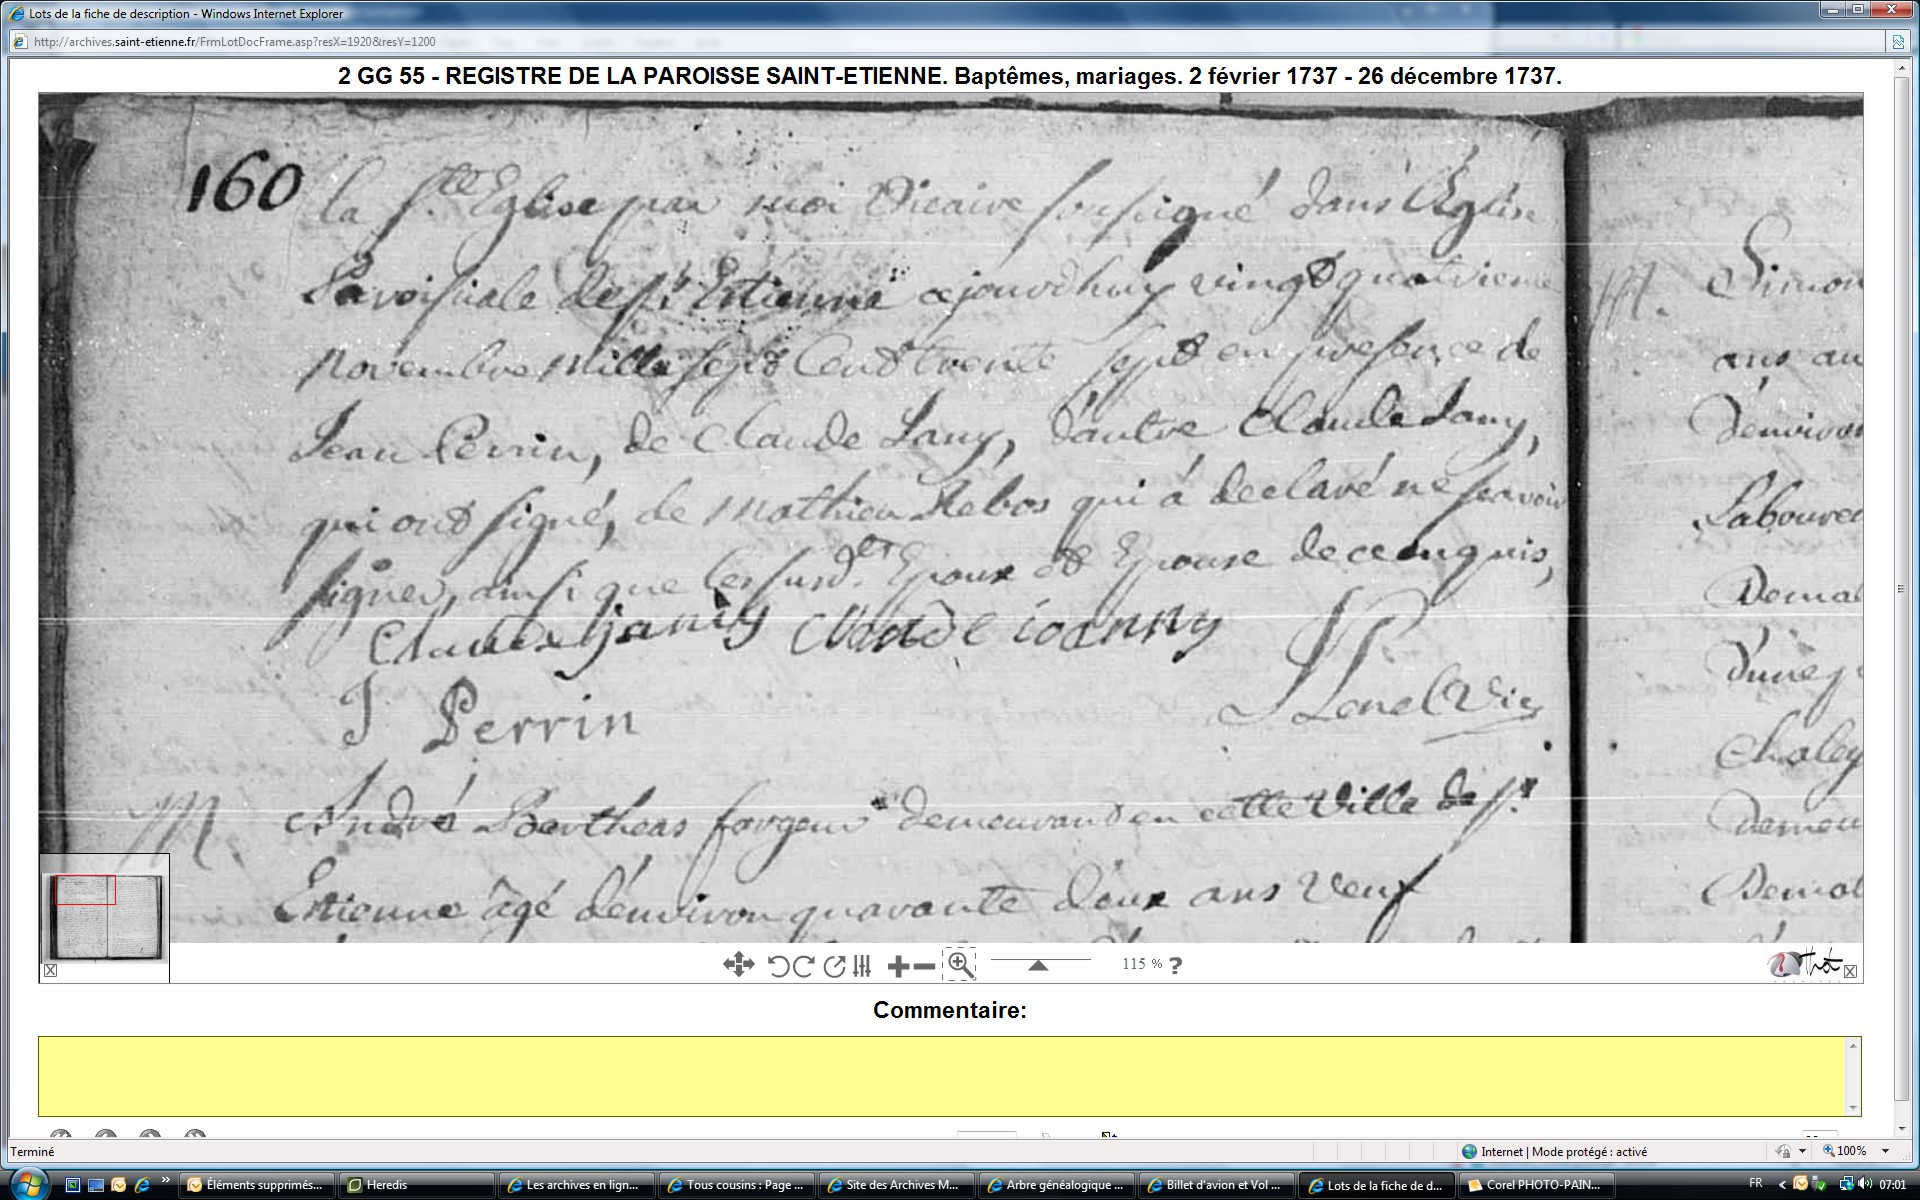 Lots de la fiche de description - Windows Internet Explorer
http://archives.saint-etienne.fr/FrmLotDocFrame.asp?resX=1920&resY=1200
2 GG 55 - REGISTRE DE LA PAROISSE SAINT-ETIENNE. Baptêmes, mariages. 2 février 1737 - 26 décembre 1737.
160
la Ste Eglise par moi Vicaire soussigné dans l'Eglise
Paroissiale de St Estienne ajourdhuy vingt quatrieme
novembre mille sept Cent trente sept en presence de
Jean Perrin, de Claude Jany, d'autre Claude Jany,
qui ont signé, de Mathieu Rebos qui á declaré ne scavoir
signer, ainsi que les susd. Epoux et Epouse de ce enquis,
Claude janiy Claude ioanny
J Perrin
Vic
M. André Bertheas forgeur demeurant en cette Ville de St.
Estienne âgé d'environ quarante deux ans Veuf
M. Simon
ans au
d'environ
Laboureu
Demat
d'une p
Chaley
demeu
Demat
115 % ?
Commentaire:
Terminé
Internet | Mode protégé : activé
100%
Éléments supprimés...
Heredis
Les archives en lign...
Tous cousins : Page ...
Site des Archives M...
Arbre généalogique ...
Billet d'avion et Vol ...
Lots de la fiche de d...
Corel PHOTO-PAIN...
FR
07:01